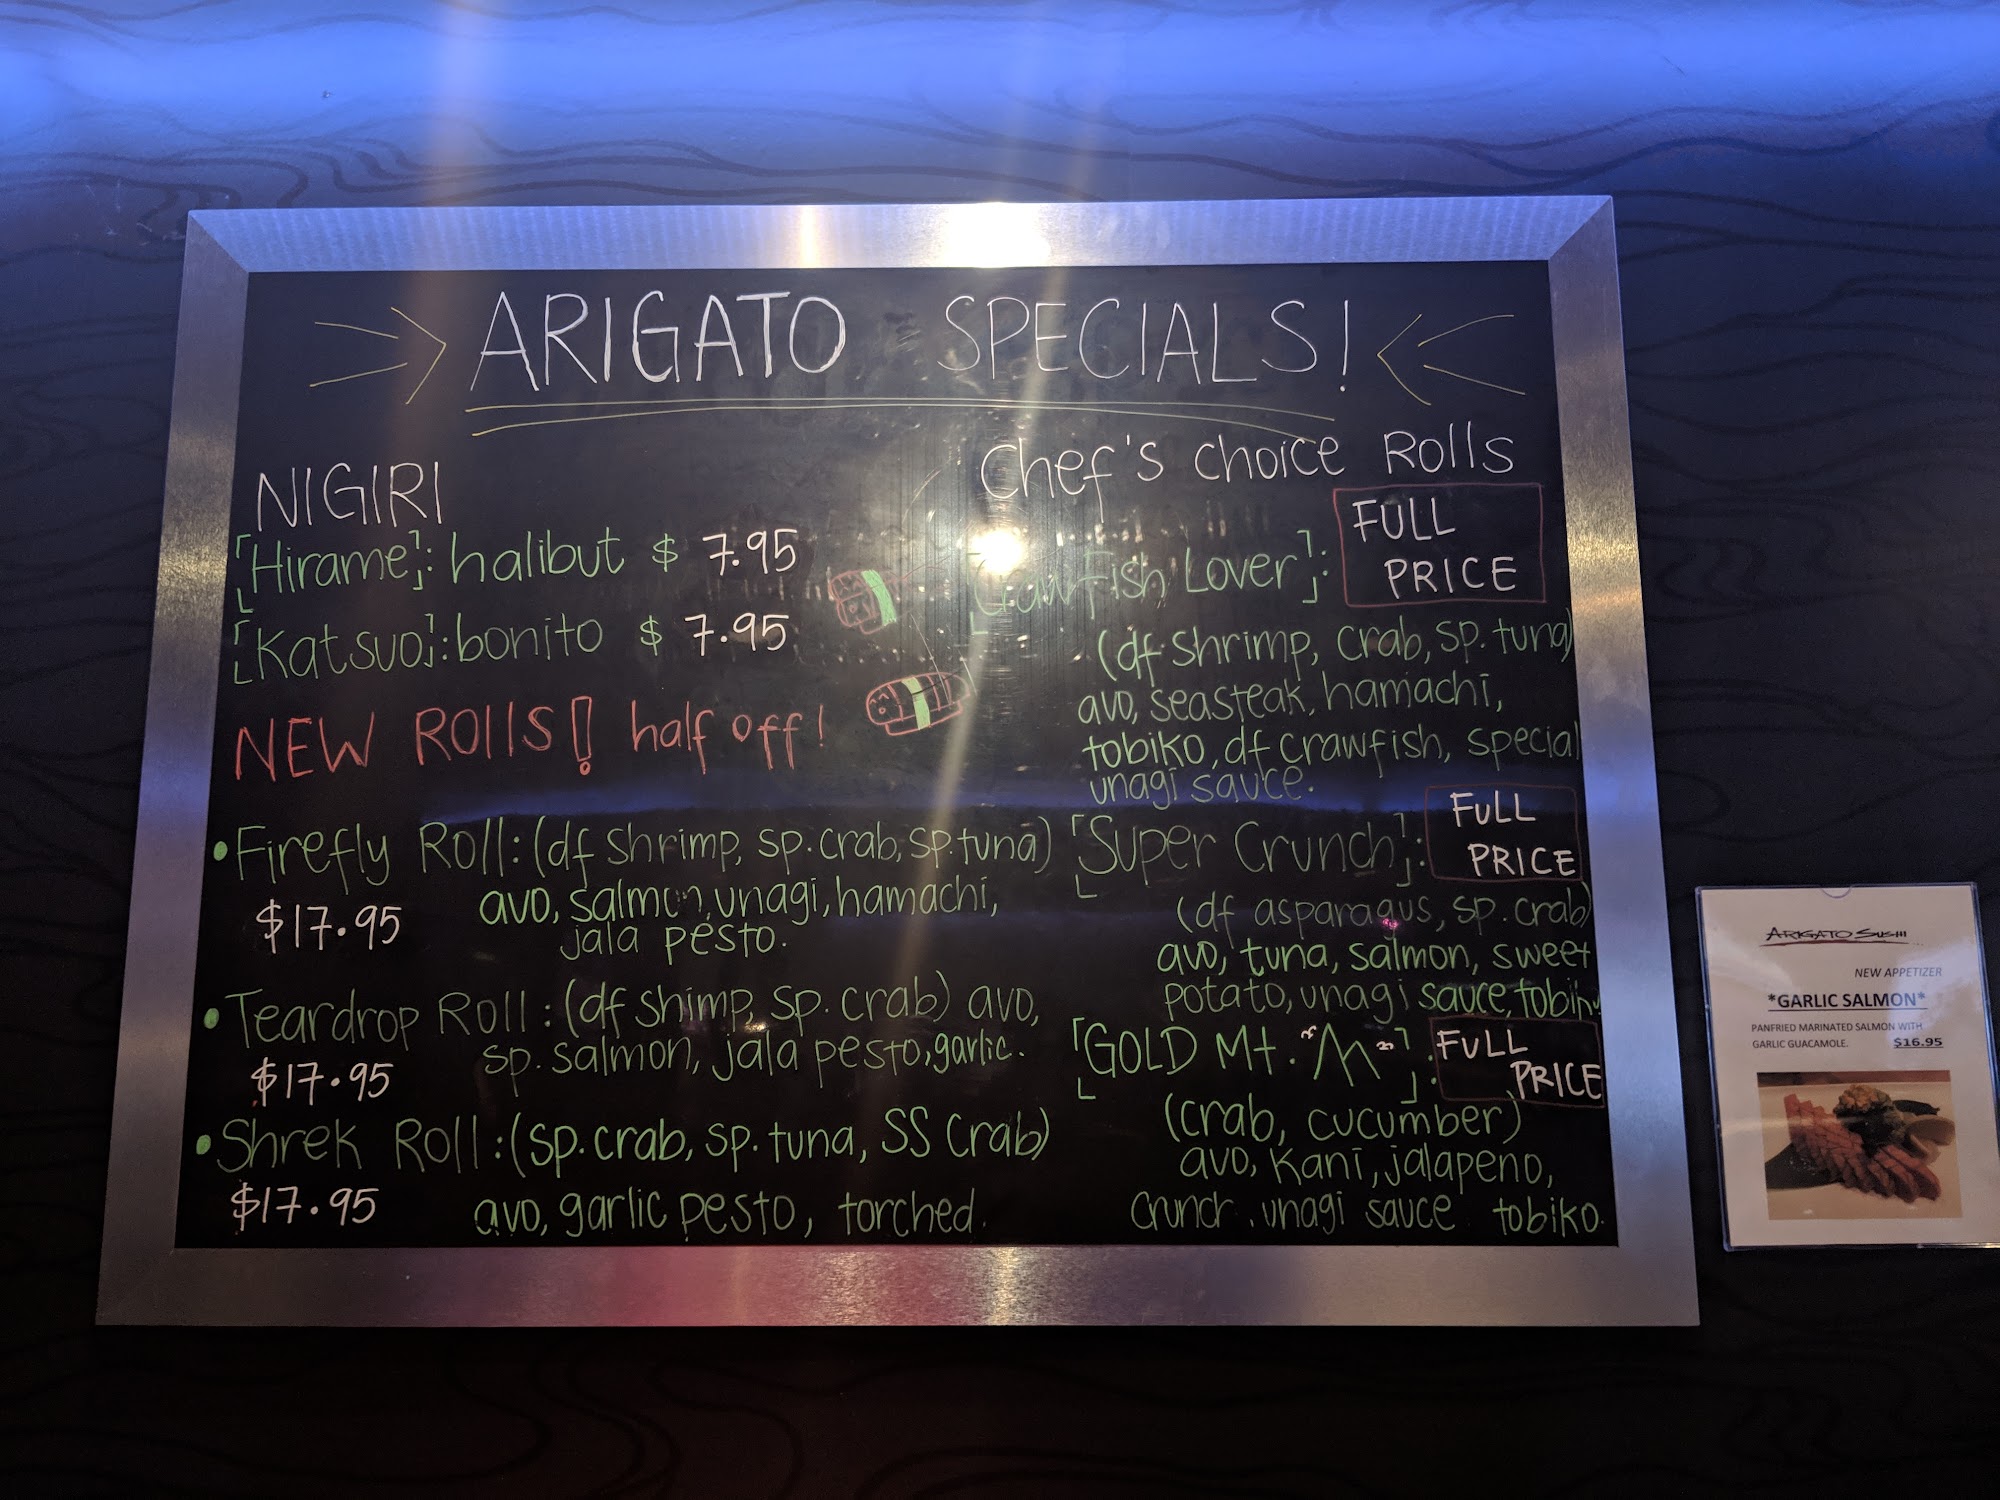 ARIGATO SPECIALS!
NIGIRI
「Hirame」: halibut $ 7.95
「Katsuo」: bonito $ 7.95
NEW ROllS! half off!
• Firefly Roll: (df shrimp, sp. crab, sp. tuna)
avo, salmon, unagi, hamachi,
$17.95
jala pesto.
• Teardrop Roll: (df shimp, sp. crab) avo,
sp. salmon, jala pesto, garlic.
$17.95
• Shrek Roll: (sp. crab, sp. tuna, SS Crab)
$17.95
avo, garlic pesto, torched.
Chef's Choice Rolls
「Crawfish Lover」: FULL
PRICE
(df shrimp, crab, sp. tuna)
avo, seasteak, hamachi,
tobiko, df crawfish, special
unagi sauce.
「Super Crunch」: FULL
PRICE
(df asparagus, sp. crab)
avo, tuna, salmon, sweet
potato, unagi sauce,
「GOLD Mt.」: FULL
PRICE
(crab, cucumber)
avo, kani, jalapeno,
crunch, unagi sauce tobiko.
ARIGATO SUSHI
NEW APPETIZER
*GARLIC SALMON*
PANFRIED MARINATED SALMON WITH
GARLIC GUACAMOLE. $16.95